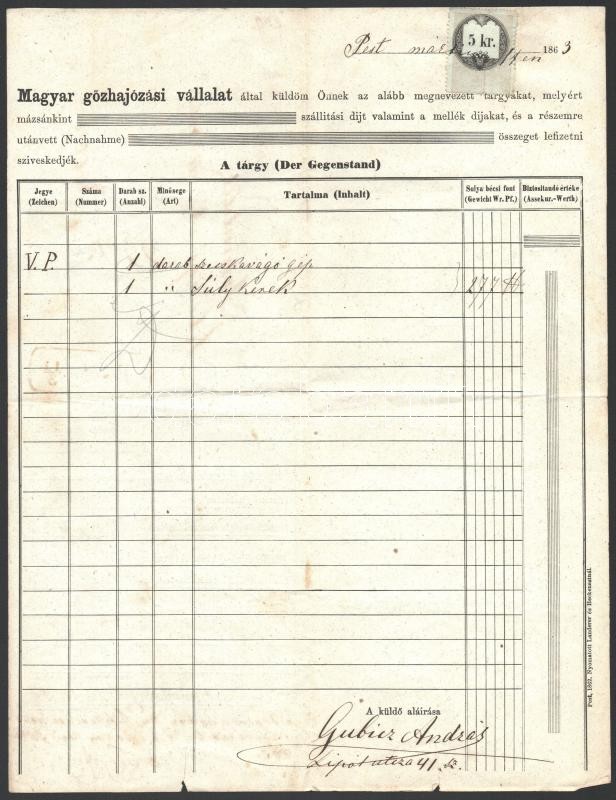 Pest 1863
5 kr.
Magyar gőzhajózási vállalat által küldöm Önnek az alább megnevezett tárgyakat, melyért
mázsánkint szállitási díjt valamint a mellék dijakat, és a részemre
utánvett (Nachnahme) összeget lefizetni
sziveskedjék.
A tárgy (Der Gegenstand)
Jegye (Zeichen) Száma (Nummer) Darab sz. (Anzahl) Minősege (Art) Tartalma (Inhalt) Sulya bécsi font (Gewicht Wr. Pf.) Biztositandó értéke (Assekur.-Werth)
V. P. 1 darab szecskavágó gép
1 " Súly kerék 277 ℔
A küldő aláirása
Gubicz András
Lipót utcza 41. sz.
Pest, 1862. Nyomatott Landerer és Heckenastnál.